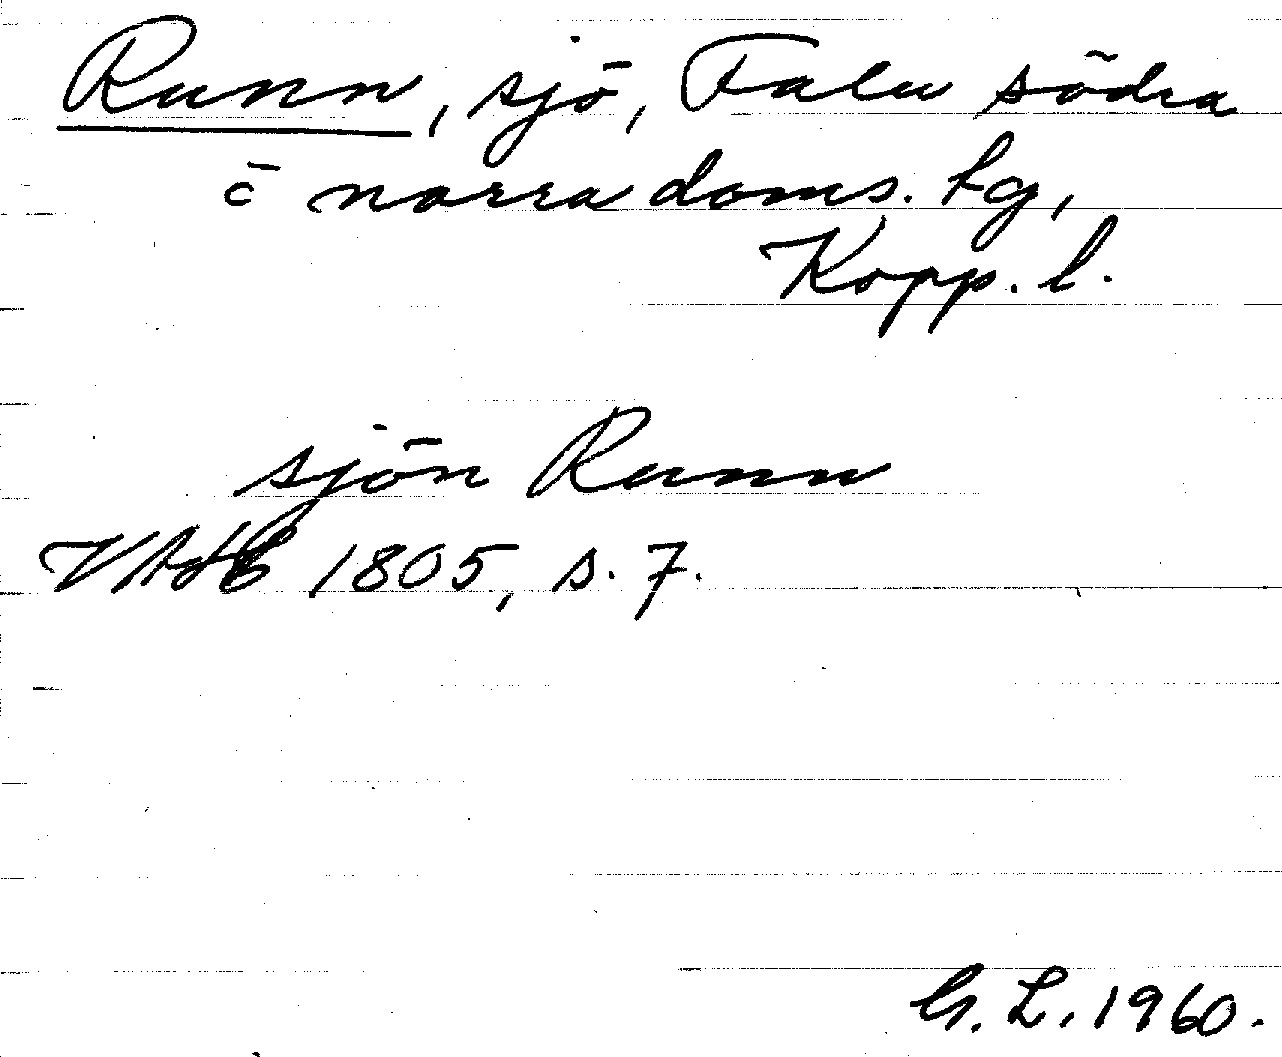 Runn, sjö, Falu södra
o norra doms. hg,
Kopp. l.
sjön Runn
VAH 1805, s. 7.
G. L. 1960.